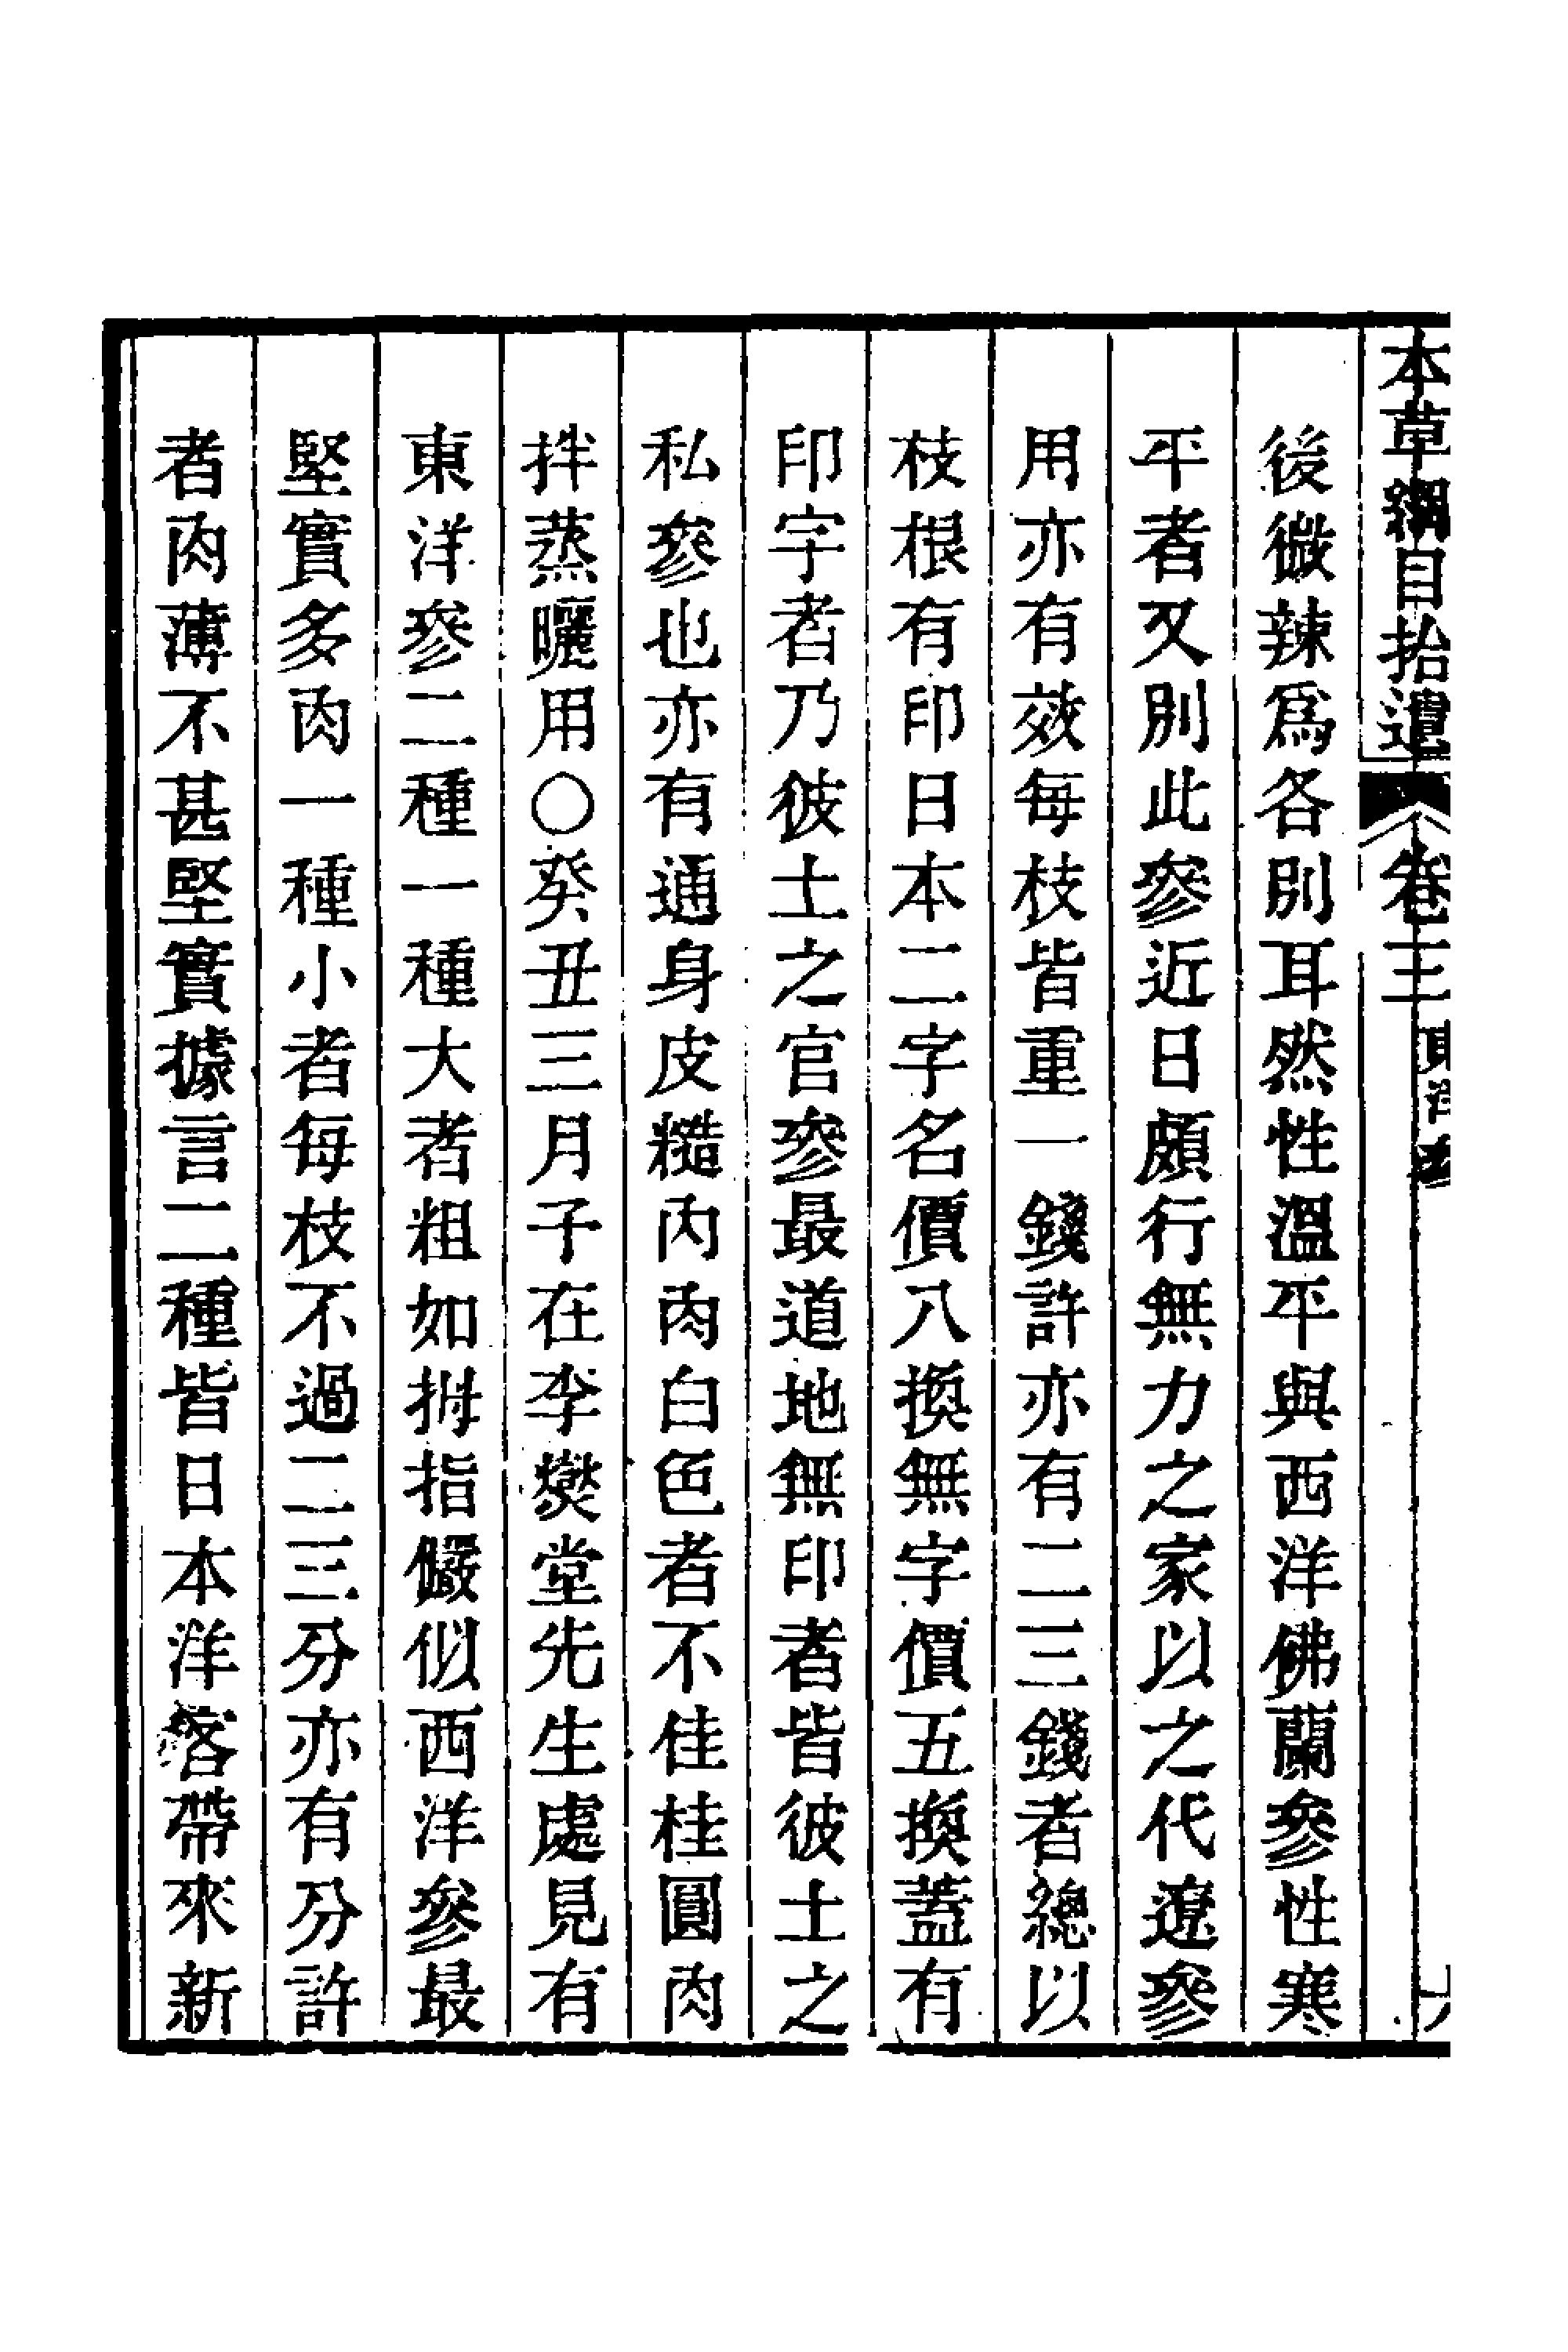 本草綱目拾遺 卷三 東洋參
後微辣爲各別耳然性溫平與西洋佛蘭參性寒
平者又別此參近日頗行無力之家以之代遼參
用亦有效每枝皆重一錢許亦有二三錢者總以
枝根有印日本二字名價八換無字價五換蓋有
印字者乃彼土之官參最道地無印者皆彼土之
私參也亦有通身皮糙內肉白色者不佳桂圓肉
拌蒸曬用○癸丑三月子在李燮堂先生處見有
東洋參二種一種大者粗如拇指儼似西洋參最
堅實多肉一種小者每枝不過二三分亦有分許
者肉薄不甚堅實據言二種皆日本洋客帶來新